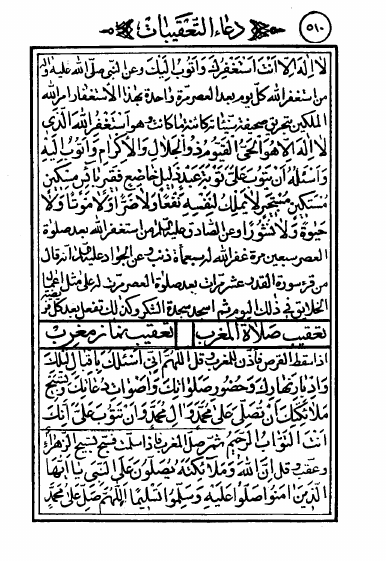 دعاء التعقيبات
٥١٠
لا اله الا انت استغفرك واتوب اليك وعن النبی صلی الله علیه وآله
من استغفر الله كل يوم بعد العصر مرة واحدة بهذا الاستغفار امر الله
الملكين بتحريق صحيفة سيئاته كائنة ما كانت وهو استغفر الله الذی
لا اله الا هو الحی القیوم ذو الجلال والاکرام واتوب الیه
واسئله ان یتوب علی توبة عبد ذلیل خاضع فقیر بائس مسکین
مستکین مستجیر لا یملک لنفسه نفعا ولا ضرا ولا موتا ولا
حیوة ولا نشورا وعن الصادق علیه السلام من استغفر الله بعد صلوة
العصر سبعین مرة غفر الله له سبعمأة ذنب وعن الجواد علیه السلام انه قال
من قرء سورة القدر عشر مرات بعد صلوة العصر مرت له علی مثل اعمال
الخلایق فی ذلک الیوم ثم اسجد سجدة الشکر وکذلک تفعل بعد کل فریضة
تعقیب صلاة المغرب تعقیب نماز مغرب
اذا سقط القرص فاذن للمغرب وقل اللهم انی اسئلک باقبال لیلک
وادبار نهارک وحضور صلواتک واصوات دعائک وتسبیح
ملائکتک ان تصلی علی محمد وال محمد وان تتوب علی انک
انت التواب الرحیم ثم صل المغرب فاذا سلمت فسبح تسبیح الزهراء
وعقبه وقل ان الله وملائکته یصلون علی النبی یا ایها
الذین امنوا صلوا علیه وسلموا تسلیما اللهم صل علی محمد